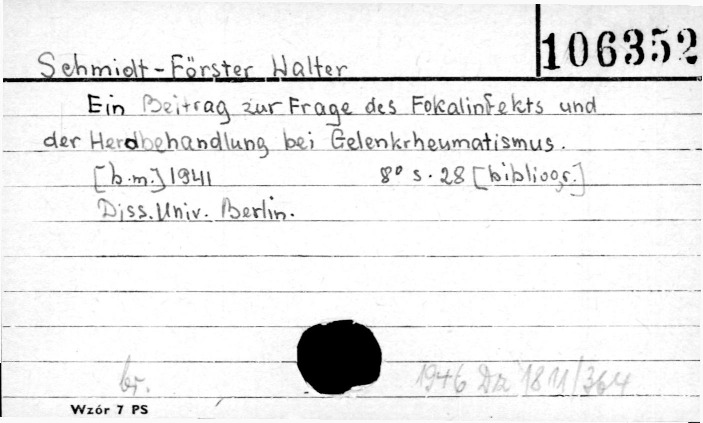 106352
Schmidt-Förster Walter
Ein Beitrag zur Frage des Fokalinfekts und
der Herdbehandlung bei Gelenkrheumatismus.
[b.m.] 1941 8° s. 28 [bibliogr.]
Diss. Univ. Berlin.
br. 1946 Dz 1811/364
Wzór 7 PS